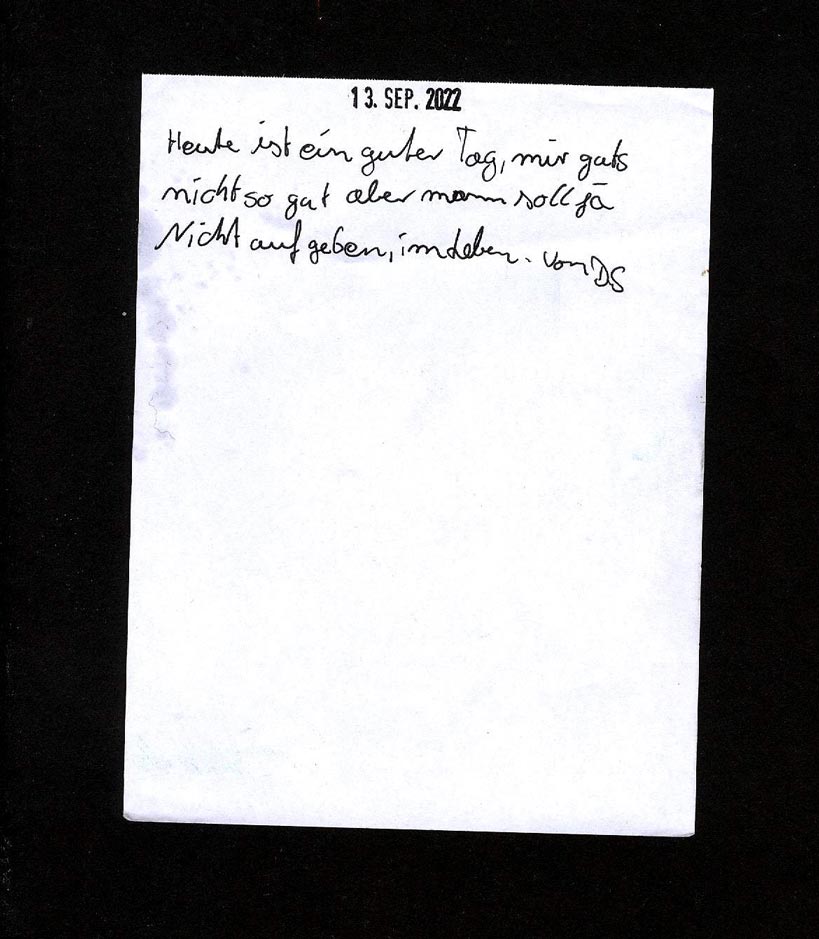 13. SEP. 2022
Heute ist ein guter Tag, mir gats
nicht so gut aber mann soll ja
Nicht auf geben, im Leben. von DS